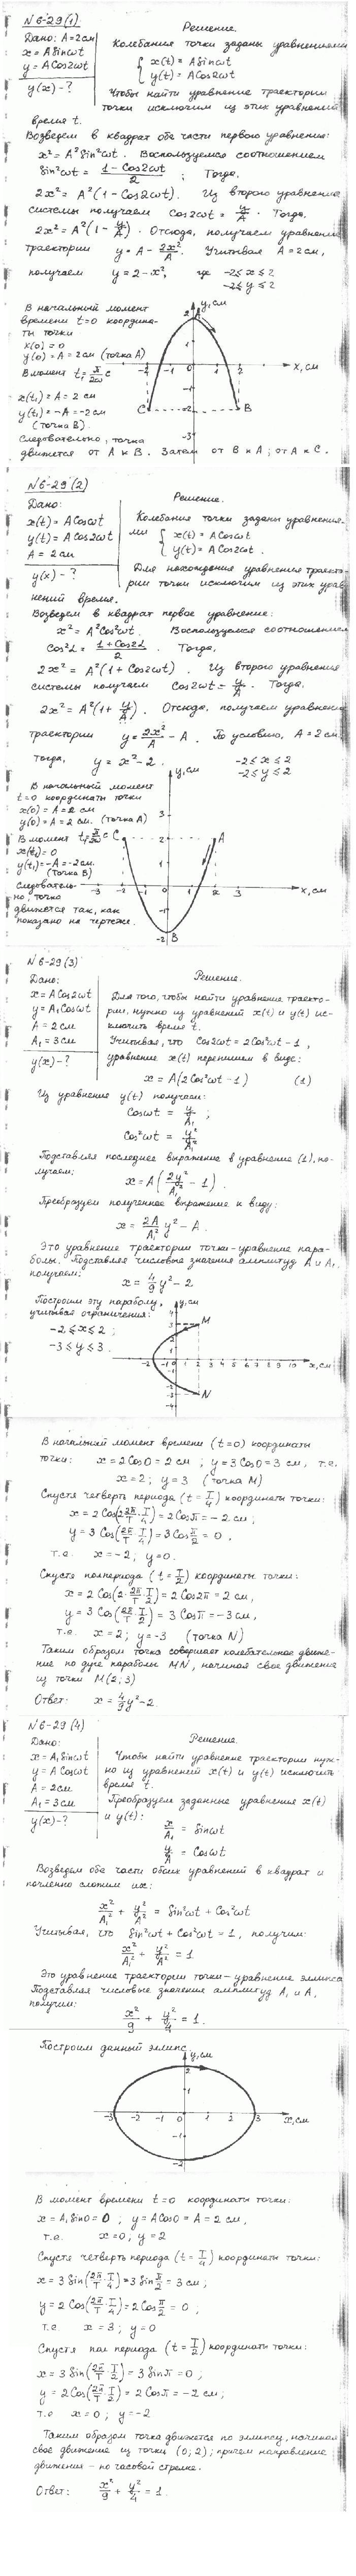 N6-29(1)
Дано: A=2см
x = A Sinωt
y = A Cos2ωt
y(x) - ?
Решение.
Колебания точки заданы уравнениями
{ x(t) = A Sinωt
y(t) = A Cos2ωt
Чтобы найти уравнение траектории
точки исключим из этих уравнений
время t.
Возведем в квадрат обе части первого уравнения:
x² = A² Sin²ωt. Воспользуемся соотношением
Sin²ωt = (1 - Cos2ωt)/2 ; Тогда,
2x² = A²(1 - Cos2ωt). Из второго уравнения
системы получаем Cos2ωt = y/A. Тогда,
2x² = A²(1 - y/A). Отсюда, получаем уравнение
траектории y = A - 2x²/A. Учитывая A = 2см,
получаем y = 2 - x², где -2≤x≤2
-2≤y≤2
В начальный момент
времени t=0 координа-
ты точки
x(0) = 0
y(0) = A = 2 см (точка A)
В момент t₁ = π/2ω с
x(t₁) = A = 2 см
y(t₁) = -A = -2 см
(точка B)
Следовательно, точка
движется от A к B. Затем от B к A; от A к C.
y, см
x, см
A
C
B
N6-29(2)
Дано:
x(t) = A Cosωt
y(t) = A Cos2ωt
A = 2 см
y(x) - ?
Решение.
Колебания точки заданы уравнения-
ми { x(t) = A Cosωt
y(t) = A Cos2ωt.
Для нахождения уравнения траекто-
рии точки исключим из этих урав-
нений время.
Возведем в квадрат первое уравнение:
x² = A² Cos²ωt. Воспользуемся соотношением
Cos²α = (1 + Cos2α)/2. Тогда,
2x² = A²(1 + Cos2ωt). Из второго уравнения
системы получаем Cos2ωt = y/A. Тогда,
2x² = A²(1 + y/A). Отсюда, получаем уравнение
траектории y = 2x²/A - A. По условию, A = 2 см.
Тогда, y = x² - 2. -2≤x≤2
-2≤y≤2
В начальный момент
t=0 координаты точки
x(0) = A = 2 см
y(0) = A = 2 см. (точка A)
В момент t₁ = π/2ω с
x(t₁) = 0
y(t₁) = -A = -2 см.
(точка B)
Следователь-
но, точка
движется так, как
показано на чертеже.
y, см
x, см
C
A
B
N6-29(3)
Дано:
x = A Cos2ωt
y = A₁ Cosωt
A = 2 см
A₁ = 3 см
y(x) - ?
Решение.
Для того, чтобы найти уравнение траекто-
рии, нужно из уравнений x(t) и y(t) ис-
ключить время t.
Учитывая, что Cos2ωt = 2Cos²ωt - 1,
уравнение x(t) перепишем в виде:
x = A(2Cos²ωt - 1) (1)
Из уравнения y(t) получаем:
Cosωt = y/A₁ ;
Cos²ωt = y²/A₁²
Подставляя последнее выражение в уравнение (1), по-
лучаем:
x = A(2y²/A₁² - 1).
Преобразуем полученное выражение к виду:
x = 2A/A₁² y² - A.
Это уравнение траектории точки - уравнение пара-
болы. Подставляя числовые значения амплитуд A и A₁,
получаем:
x = 4/9 y² - 2
Построим эту параболу,
учитывая ограничения:
-2≤x≤2 ;
-3≤y≤3.
y, см
x, см
M
N
В начальный момент времени (t=0) координаты
точки: x = 2Cos0 = 2 см ; y = 3Cos0 = 3 см, т.е.
x = 2; y = 3 (точка M)
Спустя четверть периода (t = T/4) координаты точки:
x = 2Cos(2·2π/T·T/4) = 2Cosπ = -2 см ;
y = 3Cos(2π/T·T/4) = 3Cos π/2 = 0,
т.е. x = -2; y = 0.
Спустя полпериода (t = T/2) координаты точки:
x = 2Cos(2·2π/T·T/2) = 2Cos2π = 2 см,
y = 3Cos(2π/T·T/2) = 3Cosπ = -3 см,
т.е. x = 2; y = -3 (точка N)
Таким образом точка совершает колебательное движе-
ние по дуге параболы MN, начиная свое движение
из точки M(2;3)
Ответ: x = 4/9 y² - 2.
N6-29(4)
Дано:
x = A₁ Sinωt
y = A Cosωt
A = 2см
A₁ = 3 см
y(x) - ?
Решение.
Чтобы найти уравнение траектории нуж-
но из уравнений x(t) и y(t) исключить
время t.
Преобразуем заданные уравнения x(t)
и y(t):
x/A₁ = Sinωt
y/A = Cosωt
Возведем обе части обоих уравнений в квадрат и
почленно сложим их:
x²/A₁² + y²/A² = Sin²ωt + Cos²ωt
Учитывая, что Sin²ωt + Cos²ωt = 1, получим:
x²/A₁² + y²/A² = 1
Это уравнение траектории точки - уравнение эллипса
Подставляя числовые значения амплитуд A₁ и A,
получим:
x²/9 + y²/4 = 1.
Построим данный эллипс
y, см
x, см
В момент времени t=0 координаты точки:
x = A₁ Sin0 = 0 ; y = A Cos0 = A = 2 см,
т.е. x = 0; y = 2
Спустя четверть периода (t = T/4) координаты точки:
x = 3 Sin(2π/T·T/4) = 3 Sin π/2 = 3 см;
y = 2 Cos(2π/T·T/4) = 2 Cos π/2 = 0 ;
т.е. x = 3 ; y = 0
Спустя пол периода (t = T/2) координаты точки:
x = 3 Sin(2π/T·T/2) = 3 Sinπ = 0 ;
y = 2 Cos(2π/T·T/2) = 2 Cosπ = -2 см;
т.е x = 0 ; y = -2
Таким образом точка движется по эллипсу, начиная
свое движение из точки (0; 2); причем направление
движения - по часовой стрелке.
Ответ: x²/9 + y²/4 = 1.